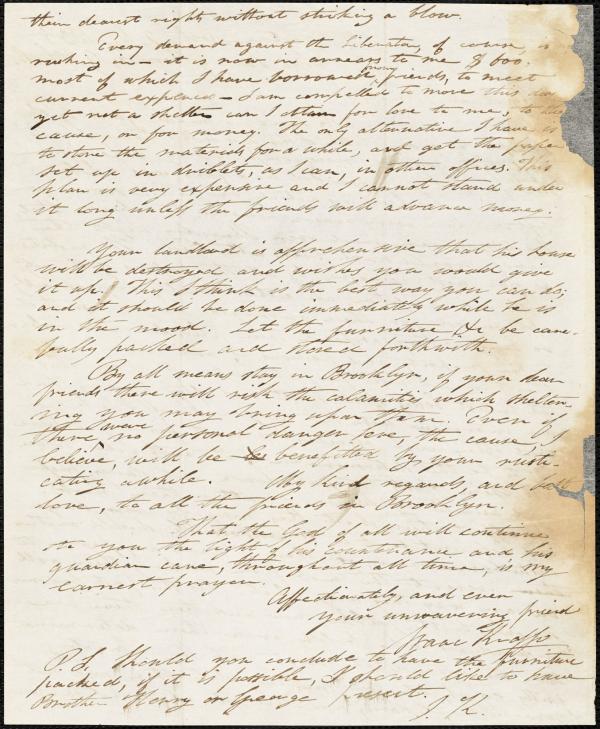 their dearest rights without striking a blow.
Every demand against the Liberator, of course, is
rushing in - it is now in arrears to me $ 600.
most of which I have borrowed money friends, to meet
current expences - I am compelled to move this day
yet not a shelter can I obtain for love to me, to the
cause, or for money. The only alternative I have is
to store the materials for a while, and get the paper
set up in driblets, as I can, in other offices. This
plan is very expensive and I cannot stand under
it long unless the friends will advance money.
Your landlord is apprehensive that his house
will be destroyed and wishes you would give
it up. This I think is the best way you can do;
and it should be done immediately while he is
in the mood. Let the furniture &c be care-
fully packed and stored forthwith.
By all means stay in Brooklyn, if your dear
friends there will risk the calamities which shelter-
ing you may bring upon them. Even if
there were no personal danger here, the cause, I
believe, will be benefitted by your rusti-
cating awhile. My kind regards, and
love, to all the friends in Brooklyn.
That the God of all will continue
to you the light of his countenance and his
guardian care, throughout all time, is my
earnest prayer.
Affectionately, and ever
your unwavering friend
Isaac Knapp
P.S. Should you conclude to have the furniture
packed, if it is possible, I should like to have
Brother Henry or George present. I. K.